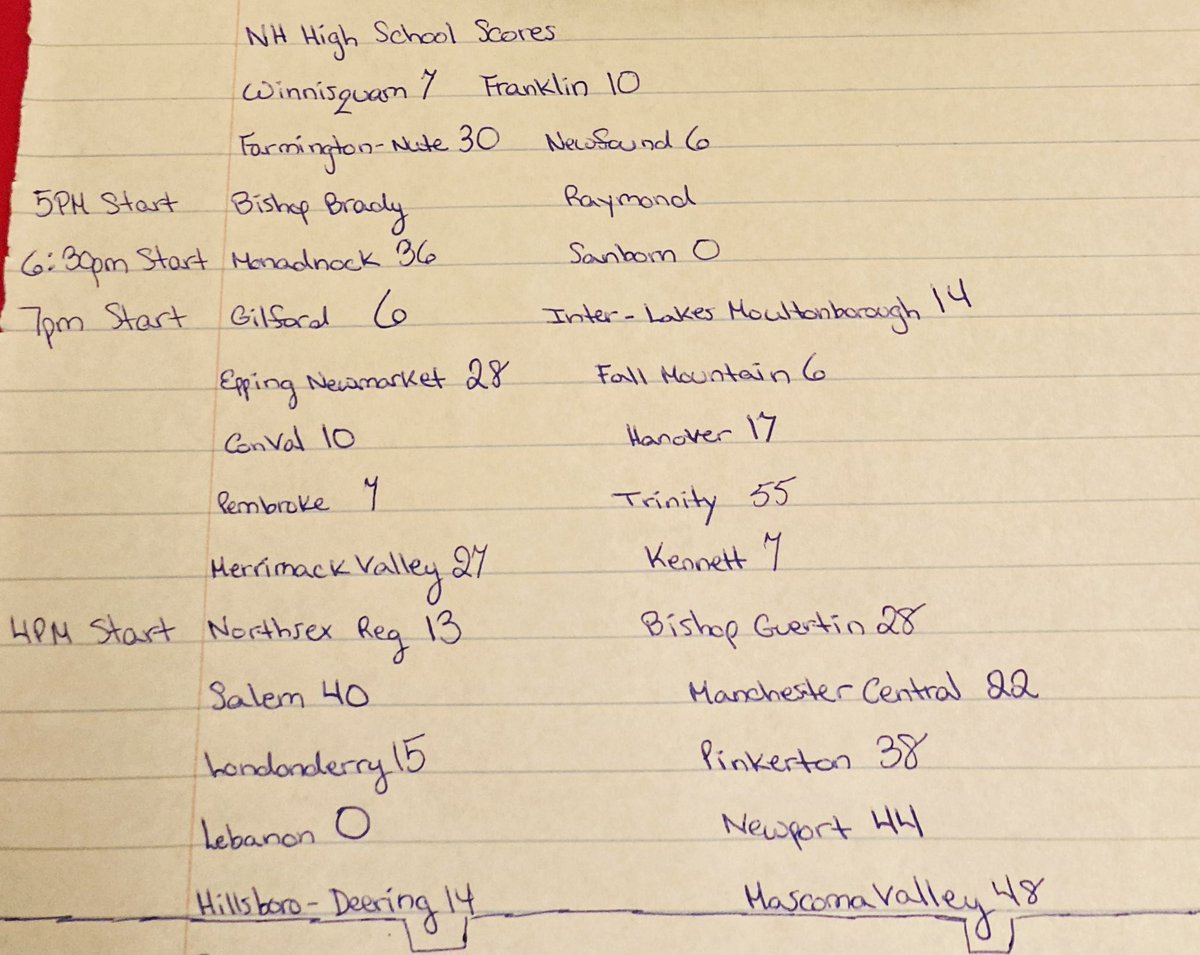 NH High School Scores
Winnisquam 7 Franklin 10
Farmington-Nute 30 Newfound 6
5PM Start Bishop Brady Raymond
6:30pm Start Monadnock 36 Sanborn 0
7pm Start Gilford 6 Inter-Lakes Moultonborough 14
Epping Newmarket 28 Fall Mountain 6
ConVal 10 Hanover 17
Pembroke 7 Trinity 55
Merrimack Valley 27 Kennett 7
4PM Start Northsex Reg 13 Bishop Guertin 28
Salem 40 Manchester Central 22
Londonderry 15 Pinkerton 38
Lebanon 0 Newport 44
Hillsboro-Deering 14 Mascoma Valley 48